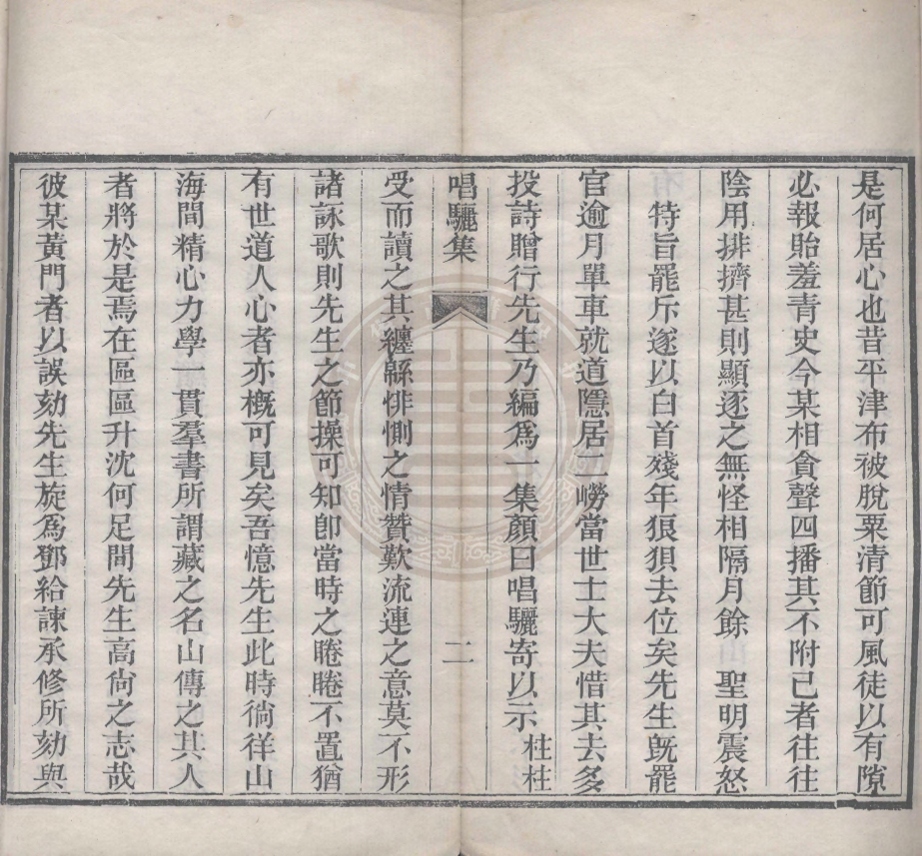 是何居心也昔平津布被脫粟清節可風徒以有隙
必報貽羞青史今某相貪聲四播其不附己者往往
陰用排擠甚則顯逐之無怪相隔月餘 聖明震怒
特旨罷斥遂以白首殘年狼狽去位矣先生旣罷
官逾月單車就道隱居二嶗當世士大夫惜其去多
投詩贈行先生乃編爲一集顏曰唱驪寄以示 桂桂
唱驪集 二
受而讀之其纏緜悱惻之情贊歎流連之意莫不形
諸詠歌則先生之節操可知卽當時之睠睠不置猶
有世道人心者亦槪可見矣吾憶先生此時徜徉山
海間精心力學一貫羣書所謂藏之名山傳之其人
者將於是焉在區區升沈何足間先生高尙之志哉
彼某黃門者以誤劾先生旋爲鄧給諫承修所劾與